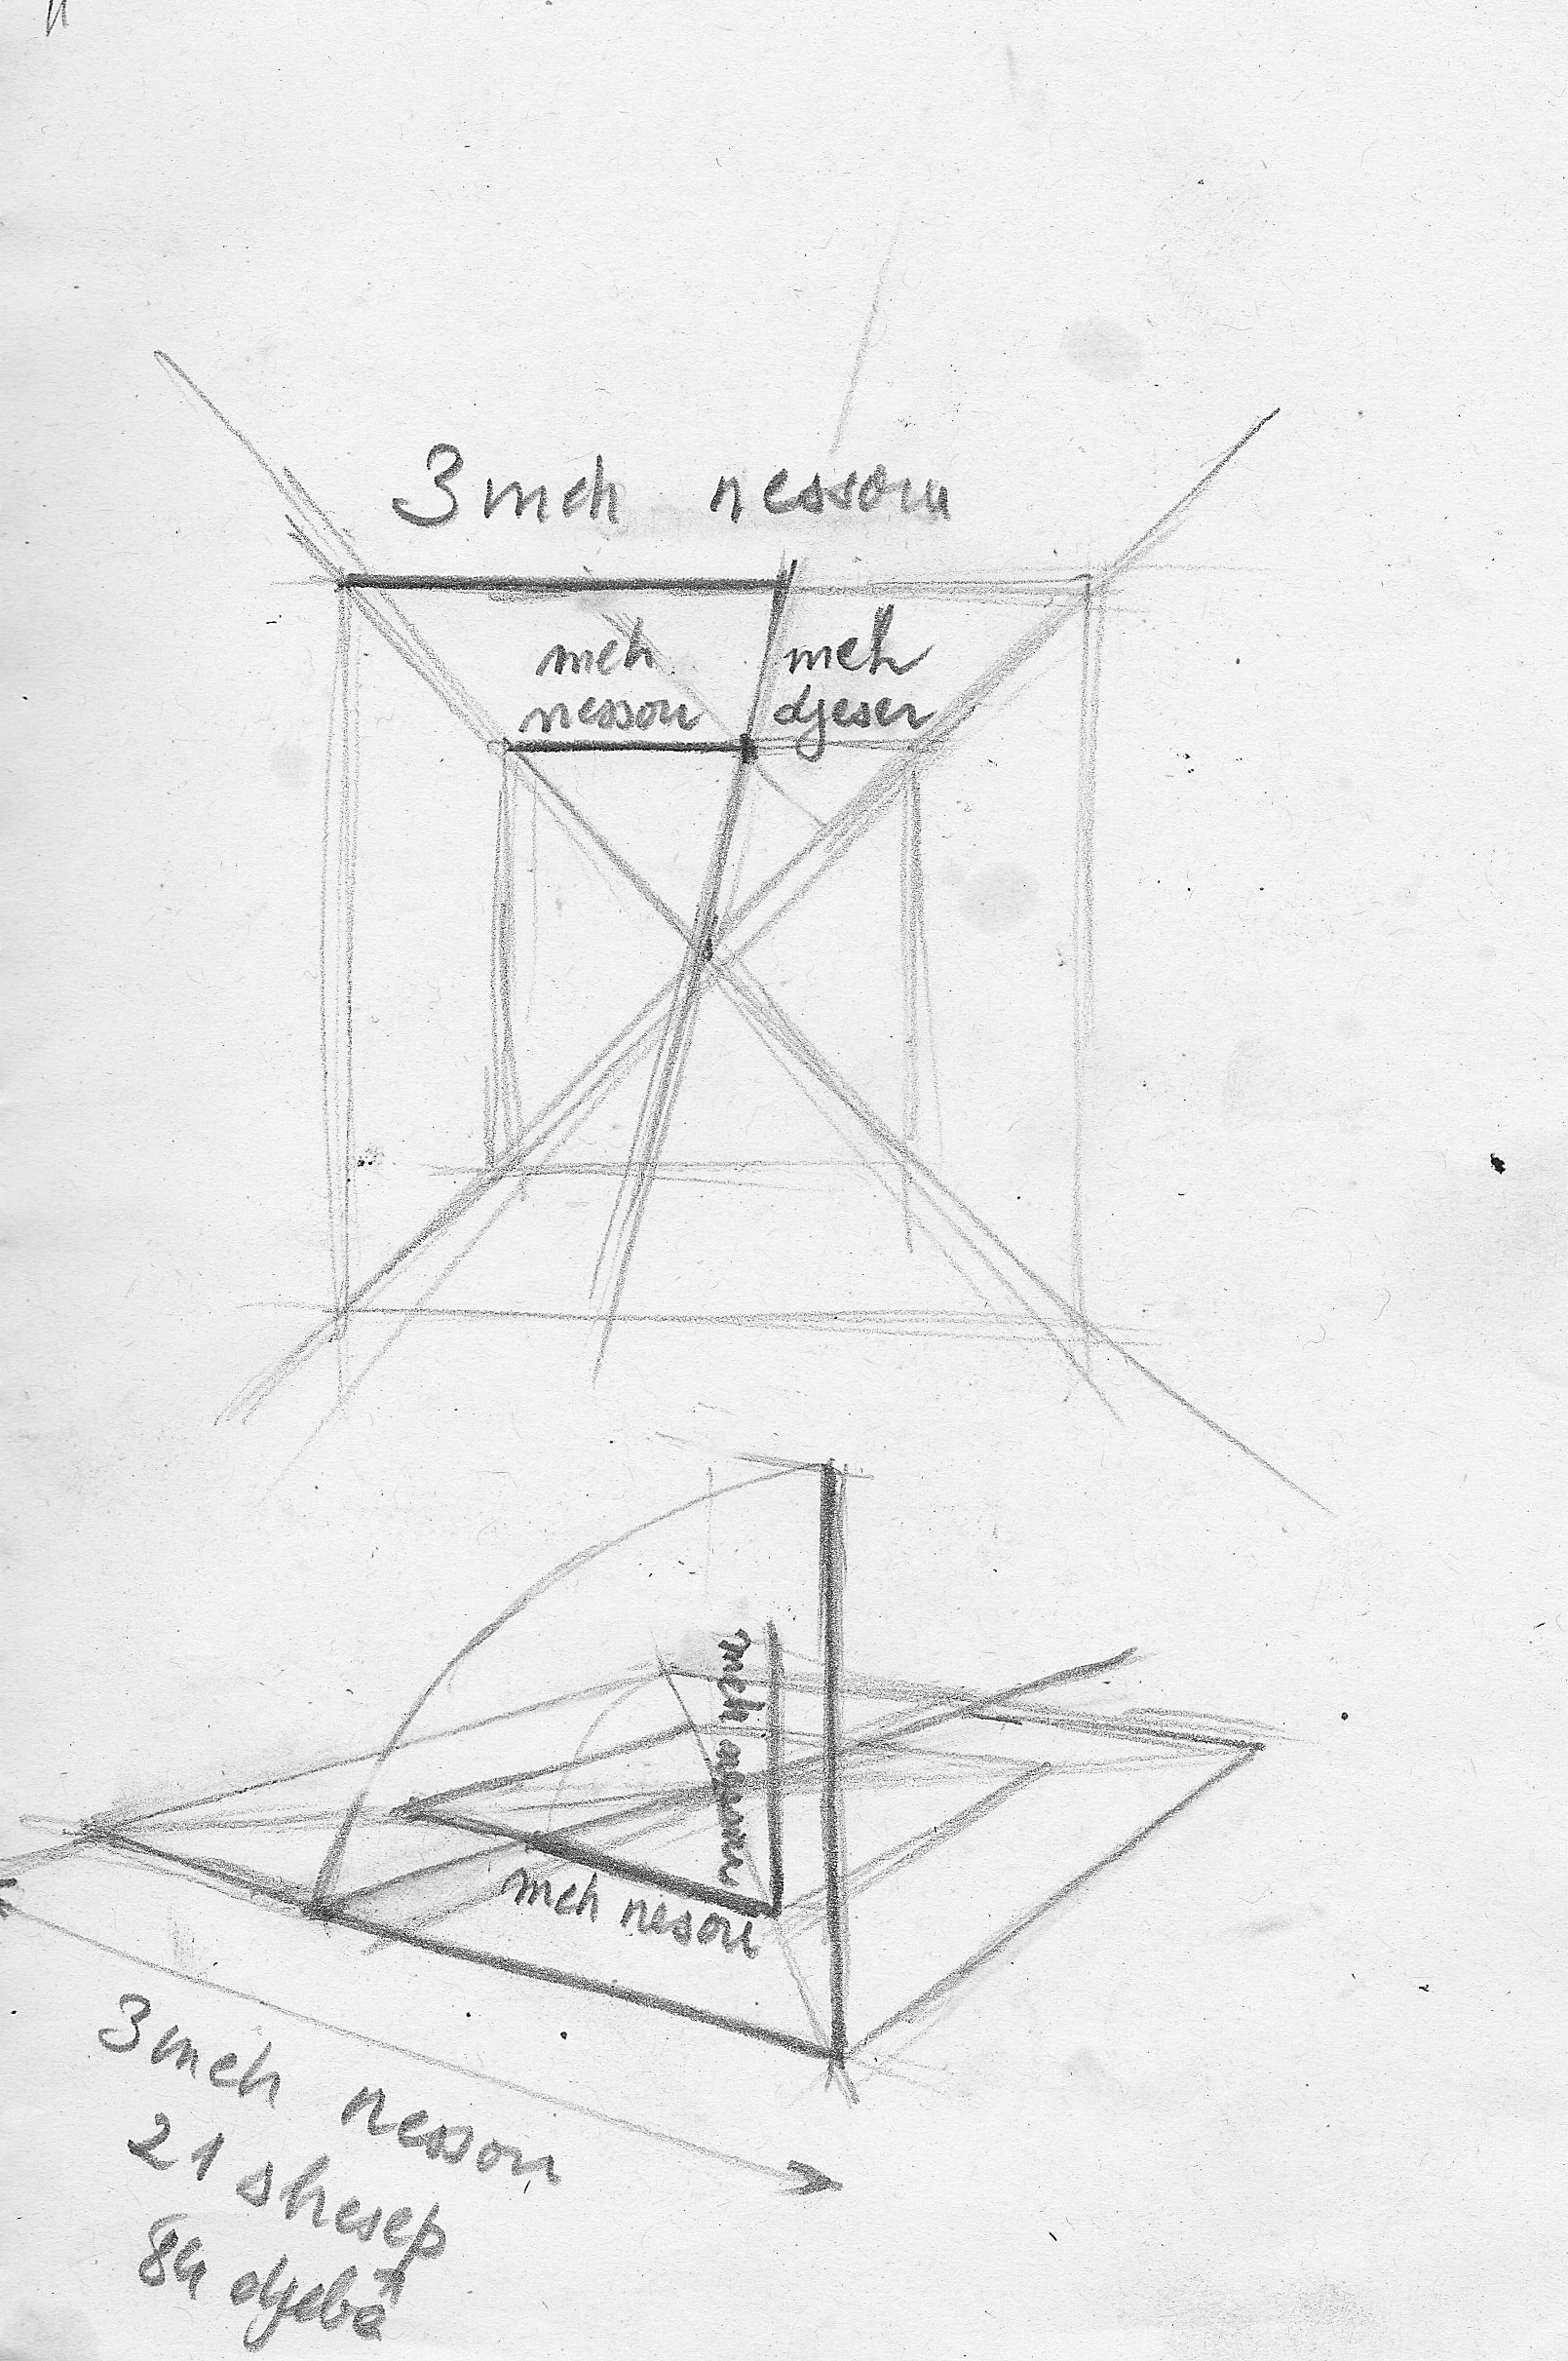 3 meh nessou
meh
nessou
meh
djeser
meh nesou
3 meh nessou
21 shesep
84 djebâ